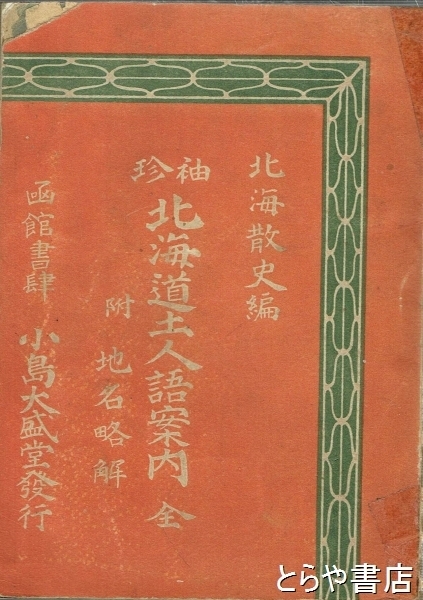 北海散史編
袖珍
北海道土人語案内 全
附 地名略解
凾館書肆 小島大盛堂發行
とらや書店